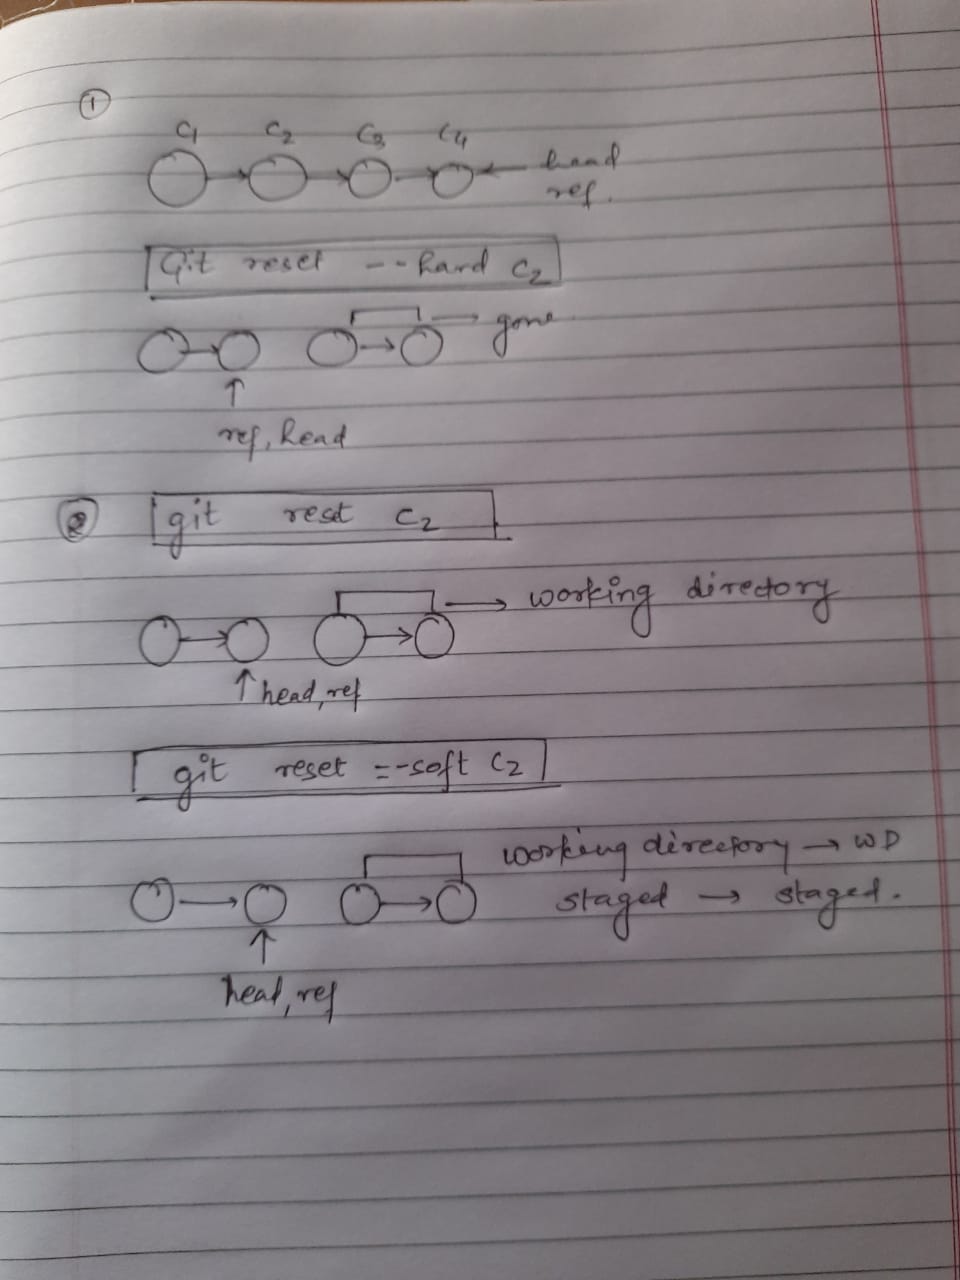 1
C1 C2 C3 C4
head
ref.
Git reset --hard C2
gone
ref, head
2 git reset C2
working directory
head, ref
git reset --soft C2
working directory → WD
staged → staged.
head, ref